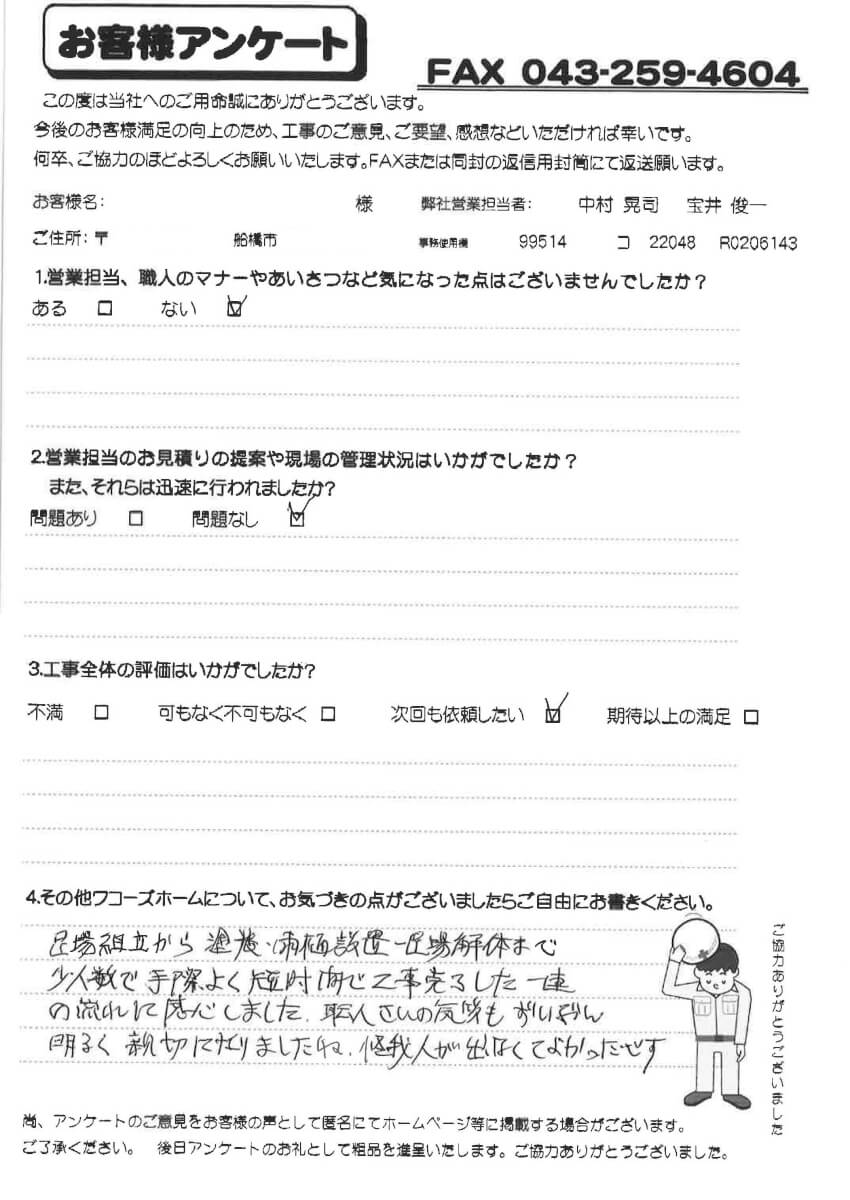 お客様アンケート
FAX 043-259-4604
この度は当社へのご用命誠にありがとうございます。
今後のお客様満足の向上のため、工事のご意見、ご要望、感想などいただければ幸いです。
何卒、ご協力のほどよろしくお願いいたします。FAXまたは同封の返信用封筒にて返送願います。
お客様名: 様 弊社営業担当者: 中村 晃司 宝井 俊一
ご住所:〒 船橋市 事務使用欄 99514 コ 22048 R0206143
1.営業担当、職人のマナーやあいさつなど気になった点はございませんでしたか?
ある □ ない ☑
2.営業担当のお見積りの提案や現場の管理状況はいかがでしたか?
また、それらは迅速に行われましたか?
問題あり □ 問題なし ☑
3.工事全体の評価はいかがでしたか?
不満 □ 可もなく不可もなく □ 次回も依頼したい ☑ 期待以上の満足 □
4.その他ワコーズホームについて、お気づきの点がございましたらご自由にお書きください。
足場組立から塗装・雨樋設置-足場解体まで
少人数で手際よく短時間で工事完了した一連
の流れに感心しました。職人さんの気質もずいぶん
明るく親切になりましたね。怪我人が出なくてよかったです
ご協力ありがとうございました
尚、アンケートのご意見をお客様の声として匿名にてホームページ等に掲載する場合がございます。
ご了承ください。 後日アンケートのお礼として粗品を進呈いたします。ご協力ありがとうございました。